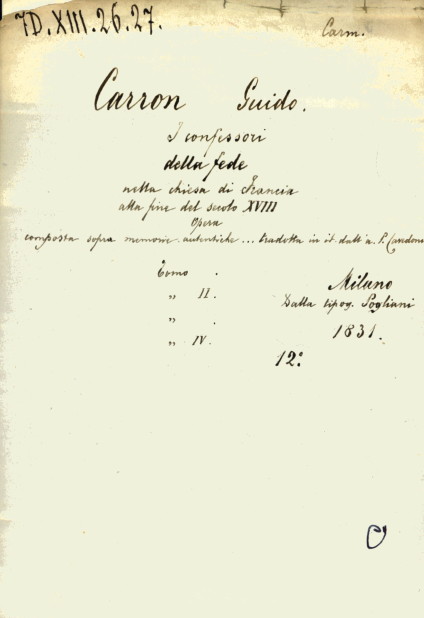 7D.XIII.26.27.
Carm.
Carron Guido.
I confessori
della fede
nella chiesa di Francia
alla fine del secolo XVIII
Opera
composta sopra memorie autentiche... tradotta in it. dall'a. P. Cavedoni
Tomo .
„ II.
„
„ IV.
Milano
Dalla tipog. Pogliani
1831.
12°